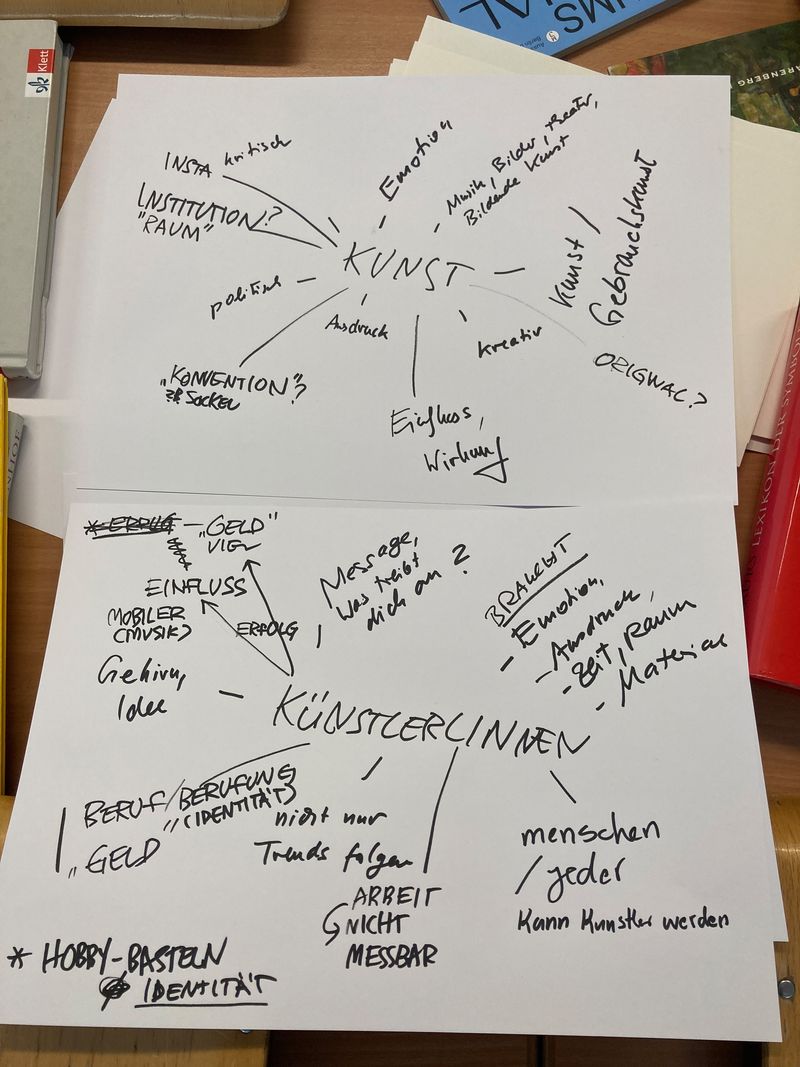 Klett
UMS
IAL
ARENBERG
INSTA kritisch
Emotion
Musik, Bilder, theater,
Bildende Kunst
INSTITUTION?
"RAUM"
KUNST
Kunst /
Gebrauchskunst
politisch
Ausdruck
kreativ
ORIGINAL?
"KONVENTION"?
SOCKEL
Einfluss,
Wirkung
LEXIKON DER SYMBOL
— „GELD"
VIEL
EINFLUSS
MOBILER
(MUSIK)
ERFOLG
Message,
was treibt
dich an?
BRAUCHT
- Emotion,
- Ausdruck,
- Zeit, Raum
- Material
Gehirn,
Idee
KÜNSTLER/INNEN
BERUF/BERUFUNG
"(IDENTITÄT)
„GELD
nicht nur
Trends folgen
ARBEIT
NICHT
MESSBAR
menschen
/ jeder
kann Künstler werden
* HOBBY-BASTELN
IDENTITÄT